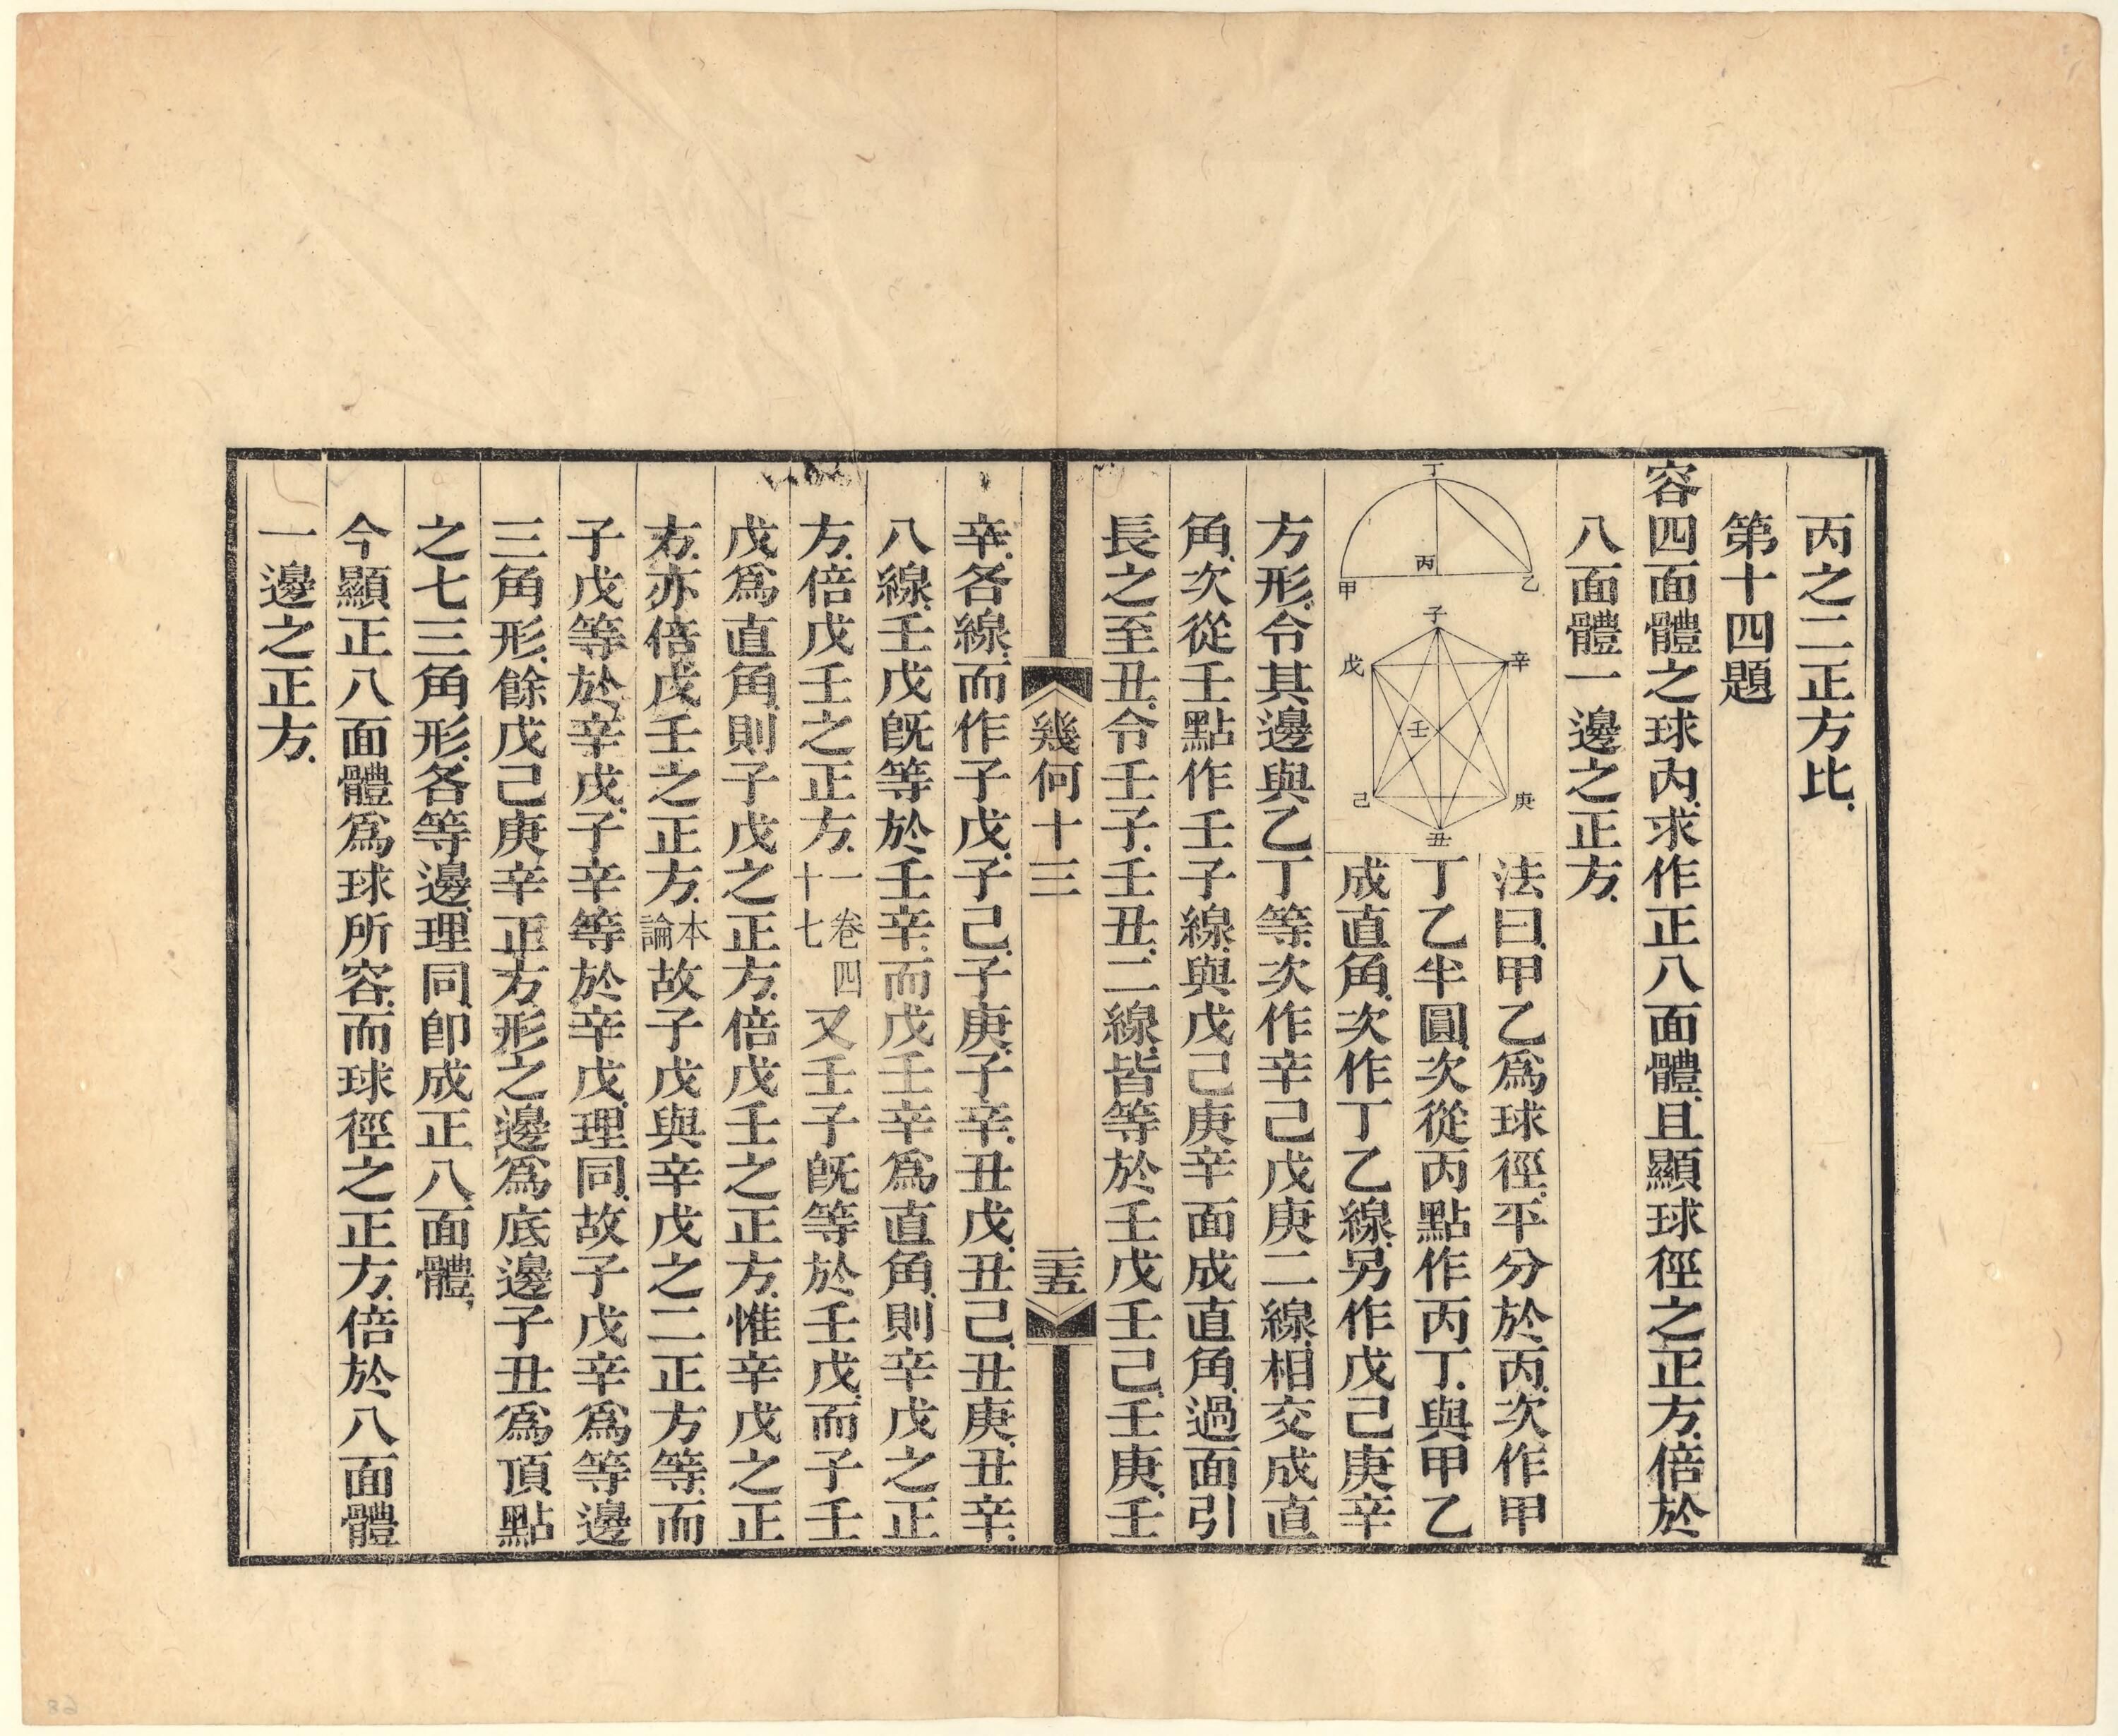 丙之二正方比.
第十四題
容四面體之球內.求作正八面體.且顯球徑之正方.倍於
八面體一邊之正方.
丁
丙
甲
乙
子
戊
辛
壬
己
庚
丑
法曰.甲乙爲球徑.平分於丙.次作甲
丁乙半圓.次從丙點作丙丁.與甲乙
成直角.次作丁乙線.另作戊己庚辛
方形.令其邊與乙丁等.次作辛己戊庚二線.相交成直
角.次從壬點作壬子線.與戊己庚辛面成直角.過面引
長之至丑.令壬子.壬丑.二線.皆等於壬戊壬己.壬庚.壬
幾何十三
三五
辛.各線.而作子戊.子己.子庚.子辛.丑戊.丑己.丑庚.丑辛.
八線.壬戊旣等於壬辛.而戊壬辛爲直角.則辛戊之正
方.倍戊壬之正方.一卷四十七又壬子旣等於壬戊.而子壬
戊爲直角.則子戊之正方.倍戊壬之正方.惟辛戊之正
方.亦倍戊壬之正方.本論故子戊與辛戊之二正方等.而
子戊等於辛戊.子辛等於辛戊.理同.故子戊辛爲等邊
三角形.餘戊己庚辛正方形之邊爲底邊子丑爲頂點
之七三角形.各等邊.理同.卽成正八面體,
今顯正八面體爲球所容.而球徑之正方.倍於八面體
一邊之正方.